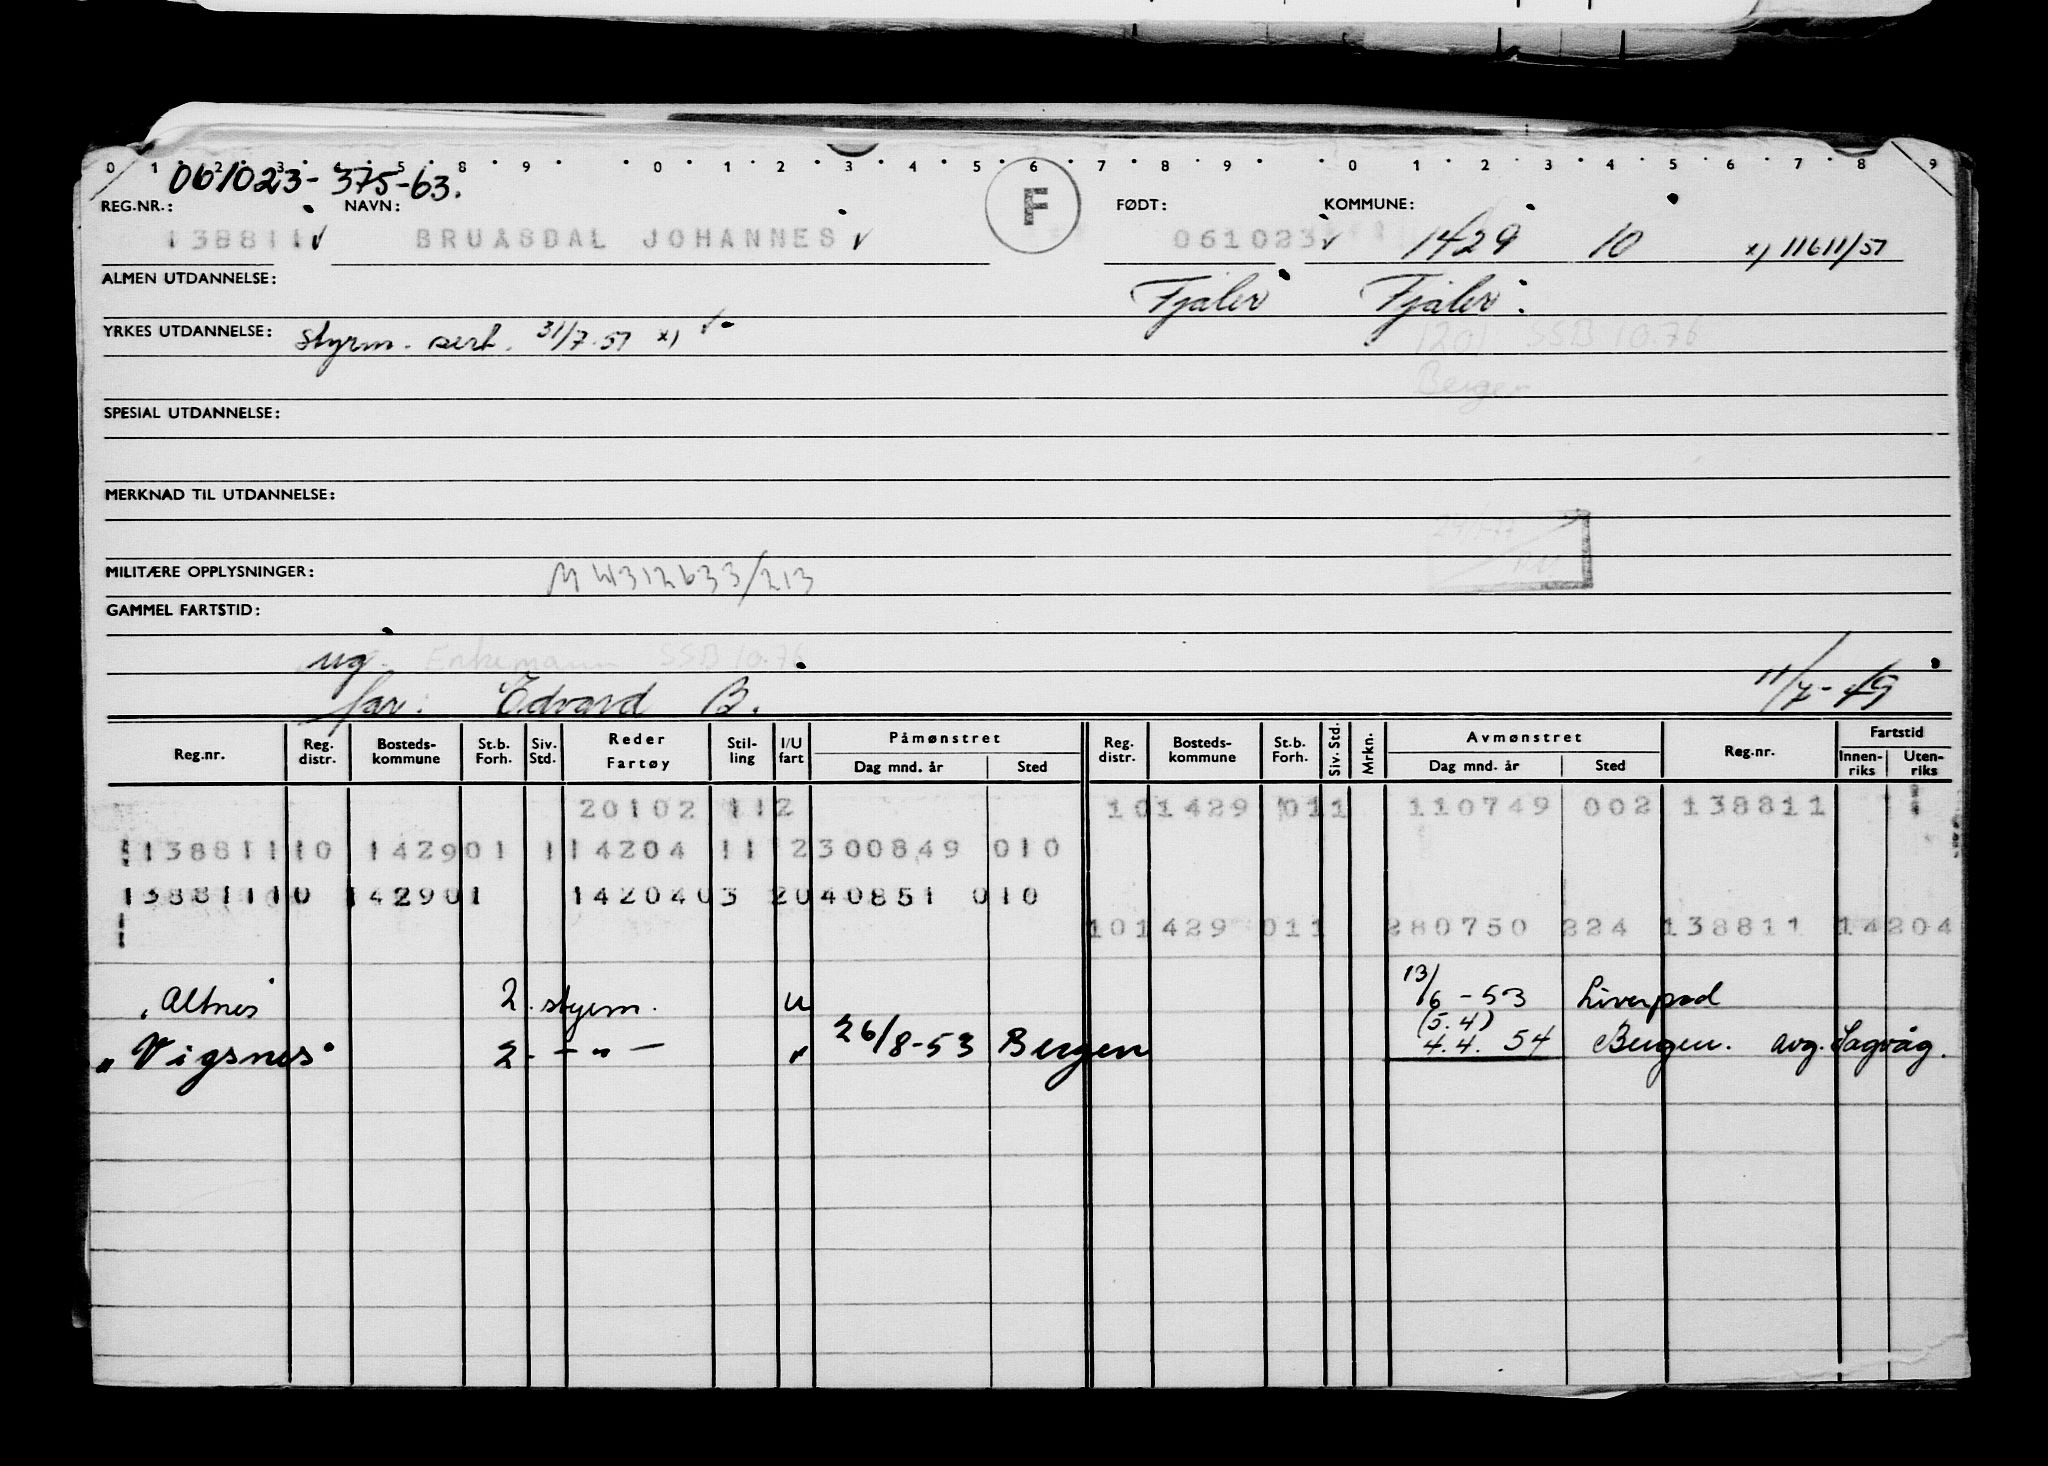 0 1 2 3 4 5 8 9 0 1 2 3 5 6 7 8 9 0 1 2 3 4 5 6 7 8 9
061023-375-63.
REG.NR.: NAVN: F FØDT: KOMMUNE:
138811 BRUASDAL JOHANNES 061023 1429 10 x) 11611/51
ALMEN UTDANNELSE: Fjaler Fjaler.
YRKES UTDANNELSE: styrm. sert. 31/7.51 x) 1201 SSB 10.76
Bergen
SPESIAL UTDANNELSE:
MERKNAD TIL UTDANNELSE:
MILITÆRE OPPLYSNINGER: MW312633/213
GAMMEL FARTSTID:
ug. Enkemann SSB 10.76
far: Edvard B. 11/7-49
Reg.nr. Reg. distr. Bosteds-kommune St.b. Forh. Siv. Std. Reder Fartøy Stil-ling I/U fart Påmønstret Dag mnd. år Sted Reg. distr. Bosteds-kommune St.b. Forh. Siv. Std. Mrkn. Avmønstret Dag mnd. år Sted Reg.nr. Fartstid Innen-riks Uten-riks
20102 112 101429 011 110749 002 138811
13881110 142901 114204 11 2300849 010
13881110 142901 1420403 2040851 010
101429 011 280750 224 138811 14204
"Altnes" 2. styrm. u 13/6-53 Liverpool
(5.4)
"Vigsnes" 2. -"- " 26/8-53 Bergen 4.4. 54 Bergen. avg. Sagvåg.